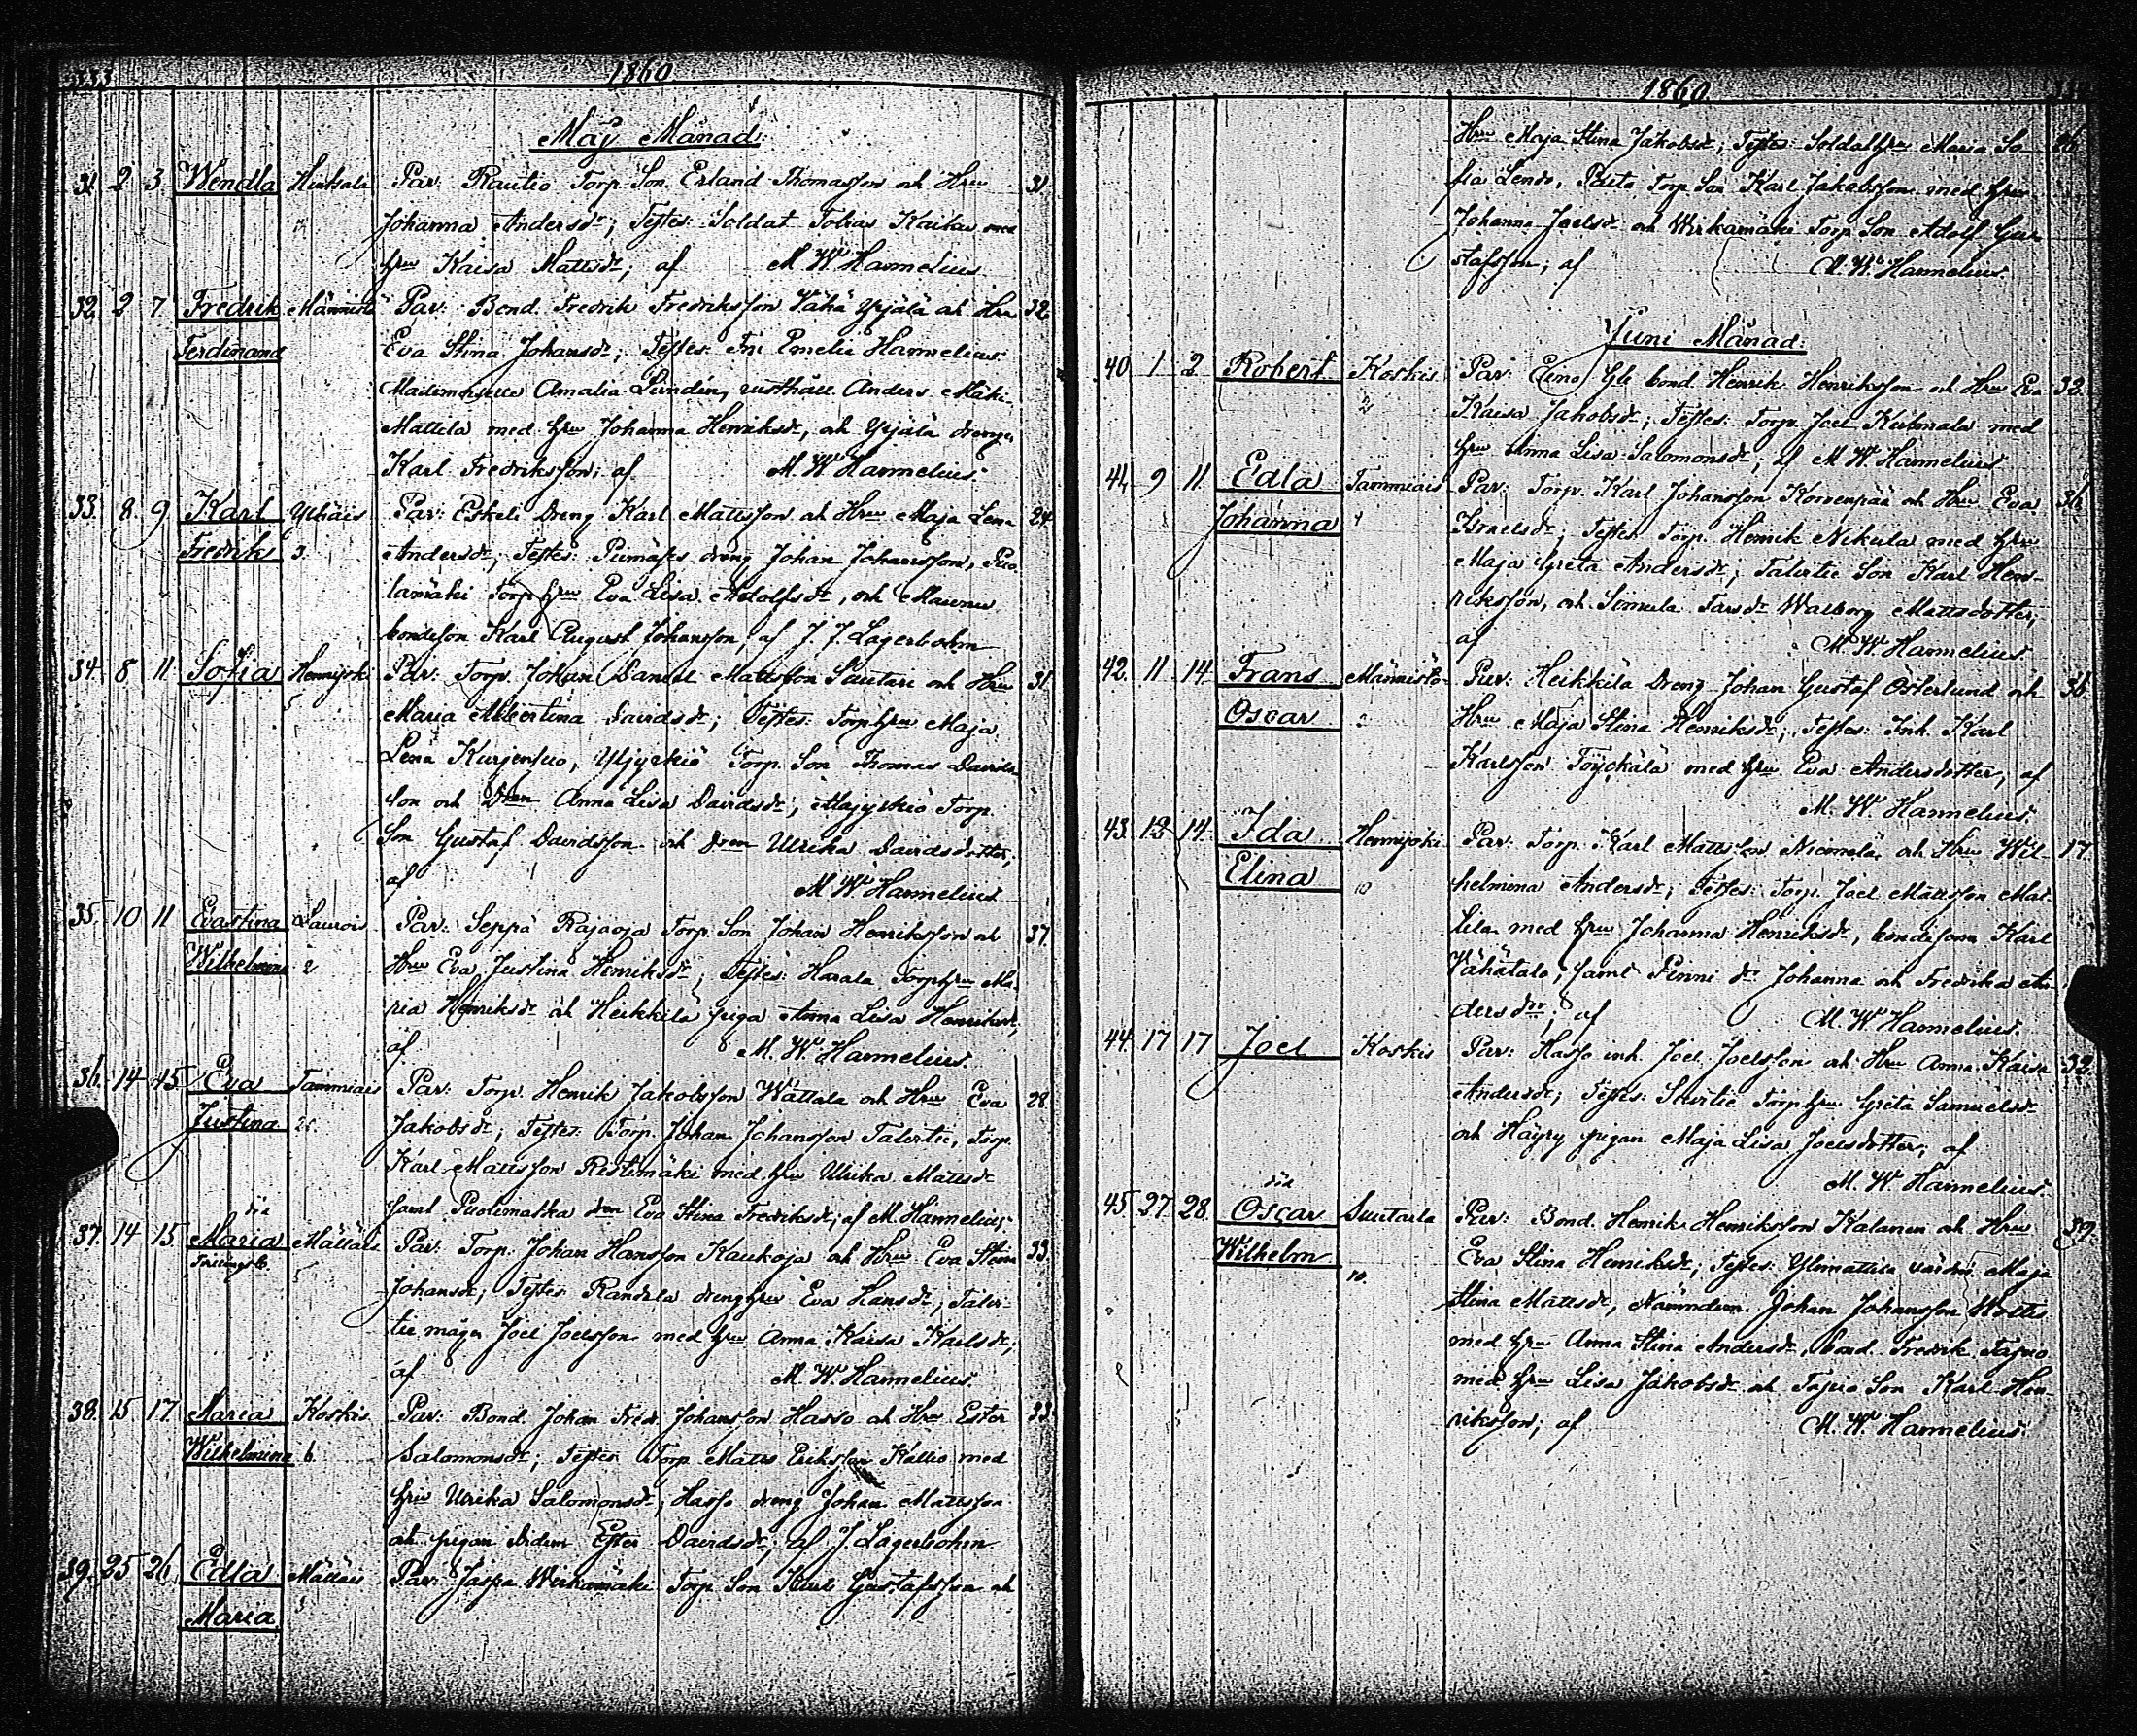 333
1860
May Månad
31. 2 3 Wendla Hintsala Par: Rautio Torp. Son Erland Thomasson och Hru 31.
Johanna Andersdr; Testes: Soldat Tobias Kaikus med
hru Kaisa Mattsdr; af M. W. Hannelius
32. 2 7 Fredrik Männistö Par: Bond. Fredrik Fredriksson Vähä Yrjälä och Hru 32.
Ferdinand Eva Stina Johansdr; Testes: Fru Emelie Hannelius
Mademoiselle Amalia Lundén, rusthåll. Anders Mäki-
Mattila med hru Johanna Henriksdr, och Yrjälä drengen
Karl Fredriksson; af M. W. Hannelius.
33. 8 9 Karl Ythäis Par: Eskeli Dreng Karl Mattsson och Hru Maja Lena 24
Fredrik 3. Andersdr; Testes: dreng Johan Johansson,
lamäki Torp hru Eva Lisa Adolfsdr, och Maunu
bondeson Karl August Johansson; af J. J. Lagerbohm
34. 8 11 Sofia Hennijoki Par: Torp. Johan Daniel Mattsson Suutari och Hru 31.
5 Maria Albertina Davidsdr; Testes: Torp hru Maja
Lena Kurjensuo, Ylijyrkiö Torp. Son Thomas Davids-
son och Dren Anna Lisa Davidsdr, Alajyrkiö Torp.
Son Gustaf Davidsson och dren Ulrika Davidsdotter;
af M. W. Hannelius
35. 10 11 Evastina Laurois Par: Seppä Rajaoja Torp. Son Johan Henriksson och 37.
Wilhelmina 2 Hru Eva Justina Henriksdr; Testes: Harala Torphru Ma-
ria Henriksdr och Heikkilä piga Anna Lisa Henriksdr,
af M. W. Hannelius.
36. 14 15 Eva Tammiais Par: Torp. Henrik Jakobsson Wättälä och Hru Eva 28
Justina Jakobsdr; Testes: Torp. Johan Johansson Talvitie, Torp.
Karl Mattsson Ristimäki med hru Ulrika Mattsdr
samt Puolimatka dren Eva Stina Fredriksdr; af M. Hannelius
37. 14 15 Maria Mättäis Par: Torp. Johan Hansson Kaukoja och Hru Eva Stina 33.
5 Johansdr; Testes: Randala drenghru Eva Hansdr, Talvi-
tie mågen Joel Joelsson med hru Anna Kaisa Karlsdr;
af M. W. Hannelius.
38. 15 17 Maria Koskis Par: Bond. Johan Fredr. Johansson Hasso och Hru Ester 33.
Wilhelmina 6. Salomonsdr; Testes: Torp. Matts Eriksson Kallio med
hru Ulrika Salomonsdr; Hasso dreng Johan Mattsson
och pigan Ester Davidsdr; af J. Lagerbohm
39. 25 26 Edla Mättäis Par: Jaspa Wirkamäki Torp. Son Karl Gustafsson och
Maria
1860.
Hru Maja Stina Jakobsdr; Testes: Soldathru Maria So- 26
fia Torp. Son Karl Jakobsson med hru
Johanna Joelsdr och Wirkamäki Torp. Son Adolf Gu-
stafsson; af M. W. Hannelius.
Juni Månad.
40. 1 2 Robert Koskis Par: Eeno Yli bond. Henrik Henriksson och Hru Eva 32.
Kaisa Jakobsdr; Testes: Torp. Joel Kuhmala med
hru Anna Lisa Salomonsdr; af M. W. Hannelius
41. 9 11 Edla Tammiais Par: Torp. Karl Johansson Korvenpää och Hru Eva 36
Johanna 4 Israelsdr; Testes: Torp. Henrik Nikula med hru
Maja Greta Andersdr; Talvitie Son Karl Hen-
riksson, och Simula Walborg Mattsdotter;
af M. W. Hannelius
42. 11 14 Frans Männistö Par: Heikkilä Dreng Johan Gustaf Österlund och 36.
Oscar 2 Hru Maja Stina Henriksdr; Testes: Inh. Karl
Karlsson Töyckälä med hru Eva Andersdotter; af
M. W. Hannelius.
43. 13 14 Ida Hennijoki Par: Torp. Karl Mattsson Niemelä och Hru Wil- 17.
Elina 10 helmina Andersdr; Testes: Torp. Joel Mattsson Mat-
tila med hru Johanna Henriksdr, bondeson Karl
Vähätalo, samt Penni dr Johanna och Fredrika An-
dersdr; af M. W. Hannelius.
44. 17 17 Joel Koskis Par: Hasso inh. Joel Joelsson och Hru Anna Kaisa 32.
Andersdr; Testes: Torphru Greta Samuelsdr
och Häyry pigan Maja Lisa Joelsdotter; af
M. W. Hannelius.
45. 27 28 Oscar Suutarla Par: Bond. Henrik Henriksson Kalanen och Hru 39.
Wilhelm 10. Eva Stina Henriksdr; Testes: Ylimattila värdin. Maja
Stina Mattsdr, Nämndem. Johan Johansson
med hru Anna Stina Andersdr, bond. Fredrik Tapio
med hru Lisa Jakobsdr och Tapio Son Karl Hen-
riksson; af M. W. Hannelius.